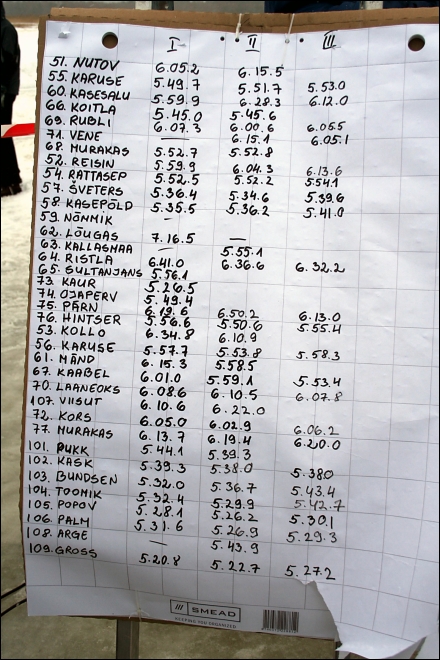 I II III
51. NUTOV 6.05.2 6.15.5
55. KARUSE 5.49.7 5.51.7 5.53.0
60. KASESALU 5.59.9 6.28.3 6.12.0
66. KOITLA 5.45.0 5.45.6
69. RUBLI 6.07.3 6.00.6 6.05.5
71. VENE — 6.15.1 6.05.1
68. MURAKAS 5.52.7 5.52.8
52. REISIN 5.59.9 6.04.3 6.13.6
54. RATTASEP 5.52.5 5.52.2 5.54.1
57. ŠVETERS 5.36.4 5.34.6 5.39.6
58. KASEPÕLD 5.35.5 5.36.2 5.41.0
59. NÕMMIK —
62. LÕUGAS 7.16.5 —
63. KALLASMAA 5.55.1
64. RISTLA 6.41.0 6.36.6 6.32.2
65. SULTANJANS 5.56.1
73. KAUR 5.26.5
74. OJAPERV 5.49.4
75. PÄRN 6.19.6 6.50.2 6.13.0
76. HINTSER 5.56.6 5.50.6 5.55.4
53. KOLLO 6.34.8 6.10.9
56. KARUSE 5.57.7 5.53.8 5.58.3
61. MÄND 6.15.3 5.58.5
67. KAABEL 6.01.0 5.59.1 5.53.4
70. LAANEOKS 6.08.6 6.10.5 6.07.8
107. VIISUT 6.10.6 6.22.0
72. KORS 6.05.0 6.02.9 6.06.2
77. MURAKAS 6.13.7 6.19.4 6.20.0
101. PUKK 5.44.1 5.39.3
102. KASK 5.39.3 5.38.0 5.38.0
103. BUNDSEN 5.32.0 5.36.7 5.43.4
104. TOOMIK 5.32.4 5.29.9 5.42.7
105. POPOV 5.28.1 5.26.2 5.30.1
106. PALM 5.31.6 5.26.9 5.29.3
108. ARGE — 5.43.9
109. GROSS 5.20.8 5.22.7 5.27.2
SMEAD
KEEPING YOU ORGANIZED